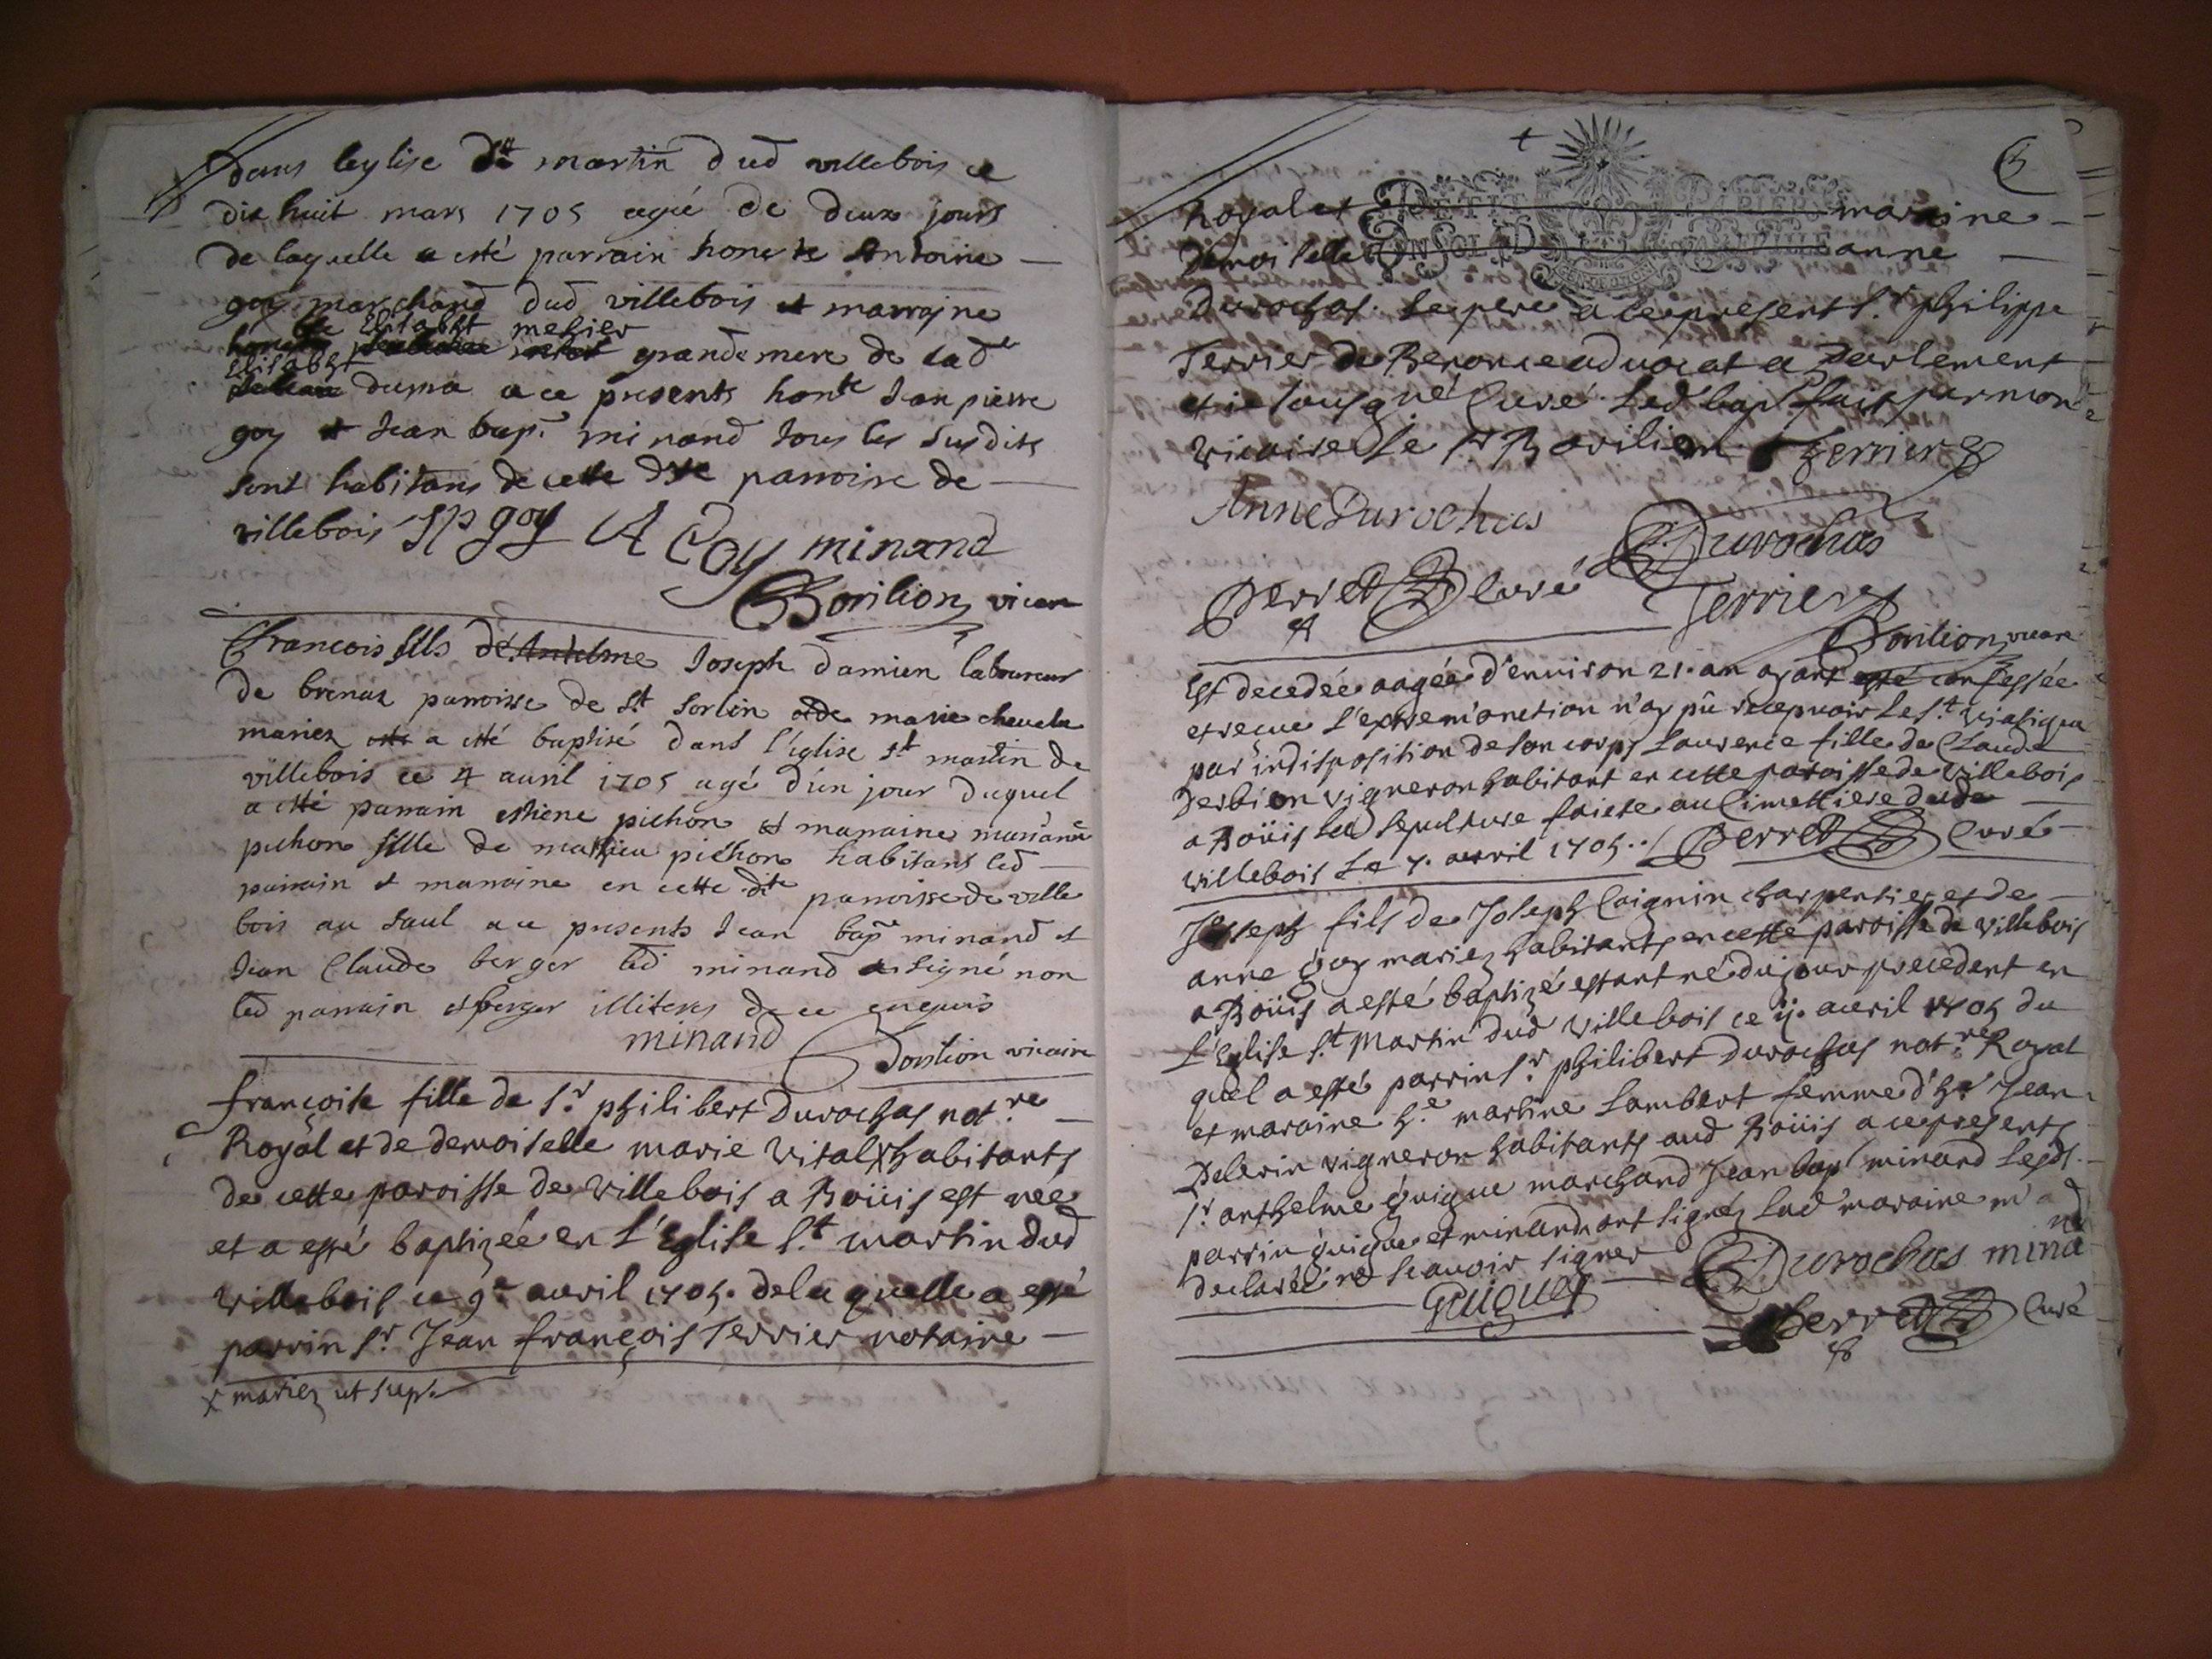 dans leglise St martin dud villebois ce
dix huit mars 1705 agée de deux jours
de laquelle a esté parrain honete Antoine
goy marchand dud villebois et marrayne
hte Elisabht mesier
grande mere de lade
Elisabht
duma a ce presents honte Jean pierre
goy et Jean bapt minand tous les susdits
sont habitans de cette dte parroisse de
villebois JP goy A Goy minand
Bovilion vicaire
Francois fills de Antelme Joseph damien laboureur
de brenaz parroisse de St Sorlin et de marie chevelu
mariez a esté baptisé dans l'église St martin de
villebois ce 4 avril 1705 agé d'un jour duquel
a esté parrain estiene pichon et marraine marianne
pichon fille de mathieu pichon habitans led
parrain et marraine en cette dte parroisse de ville
bois au Saul a ce presents Jean bapt minand et
Jean Claude berger led minand a signé non
led parrain et berger illiteres de ce enquis
minand Bovilion vicaire
françoise fille de Sr philibert Durochas notre
Royal et de demoiselle marie Vital x habitants
de cette paroisse de Villebois a Boüis est née
et a esté baptizée en L'Eglise St martin dud
Villebois ce 9e avril 1705. de la quelle a esté
parrin Sr Jean françois Terrier notaire
x mariez ut sup.
5
PETIT PAPIER
UN SOL LA FEUILLE
Royal et maraine
demoiselle anne
Durochas. Le pere a ce present Sr philippe
Terrier de Beronce advocat a Parlement
et ie sousgné Curé led bap fait par mon
vicaire le Sr Bovilion Terrier
Anne Durochas Durochas
Perret Curé Terrier
Bovilion vicaire
Est decedée aagée d'environ 21. an ayant esté confessée
et reçue L'extremonction n'ay pû recepvoir le St Viatique
par indisposition de son corps Laurence fille de Claude
Derbion vigneron habitant en cette paroisse de Villebois
a Boüis sa sepulture faicte au Cimettiere dud
Villebois Le 7. avril 1705. Perret Curé
Joseph fils de Joseph Caignin charpentier et de
anne goy mariez habitants en cette paroisse de Villebois
a Boüis a esté baptizé estant né du jour precedent en
L'Eglise St Martin dud Villebois ce ij. avril 1705 du
quel a esté parrin Sr philibert Durochas notre Royal
et maraine he martine Lambert femme d'he Jean
Pelerin vigneron habitants aud Boüis a ce presents
Sr anthelme guigue marchand Jean bapt minand lesds
parrin guigue et minand ont signéz lad maraine
declarée ne scavoir signer Durochas minand
Guigues
Perret Curé